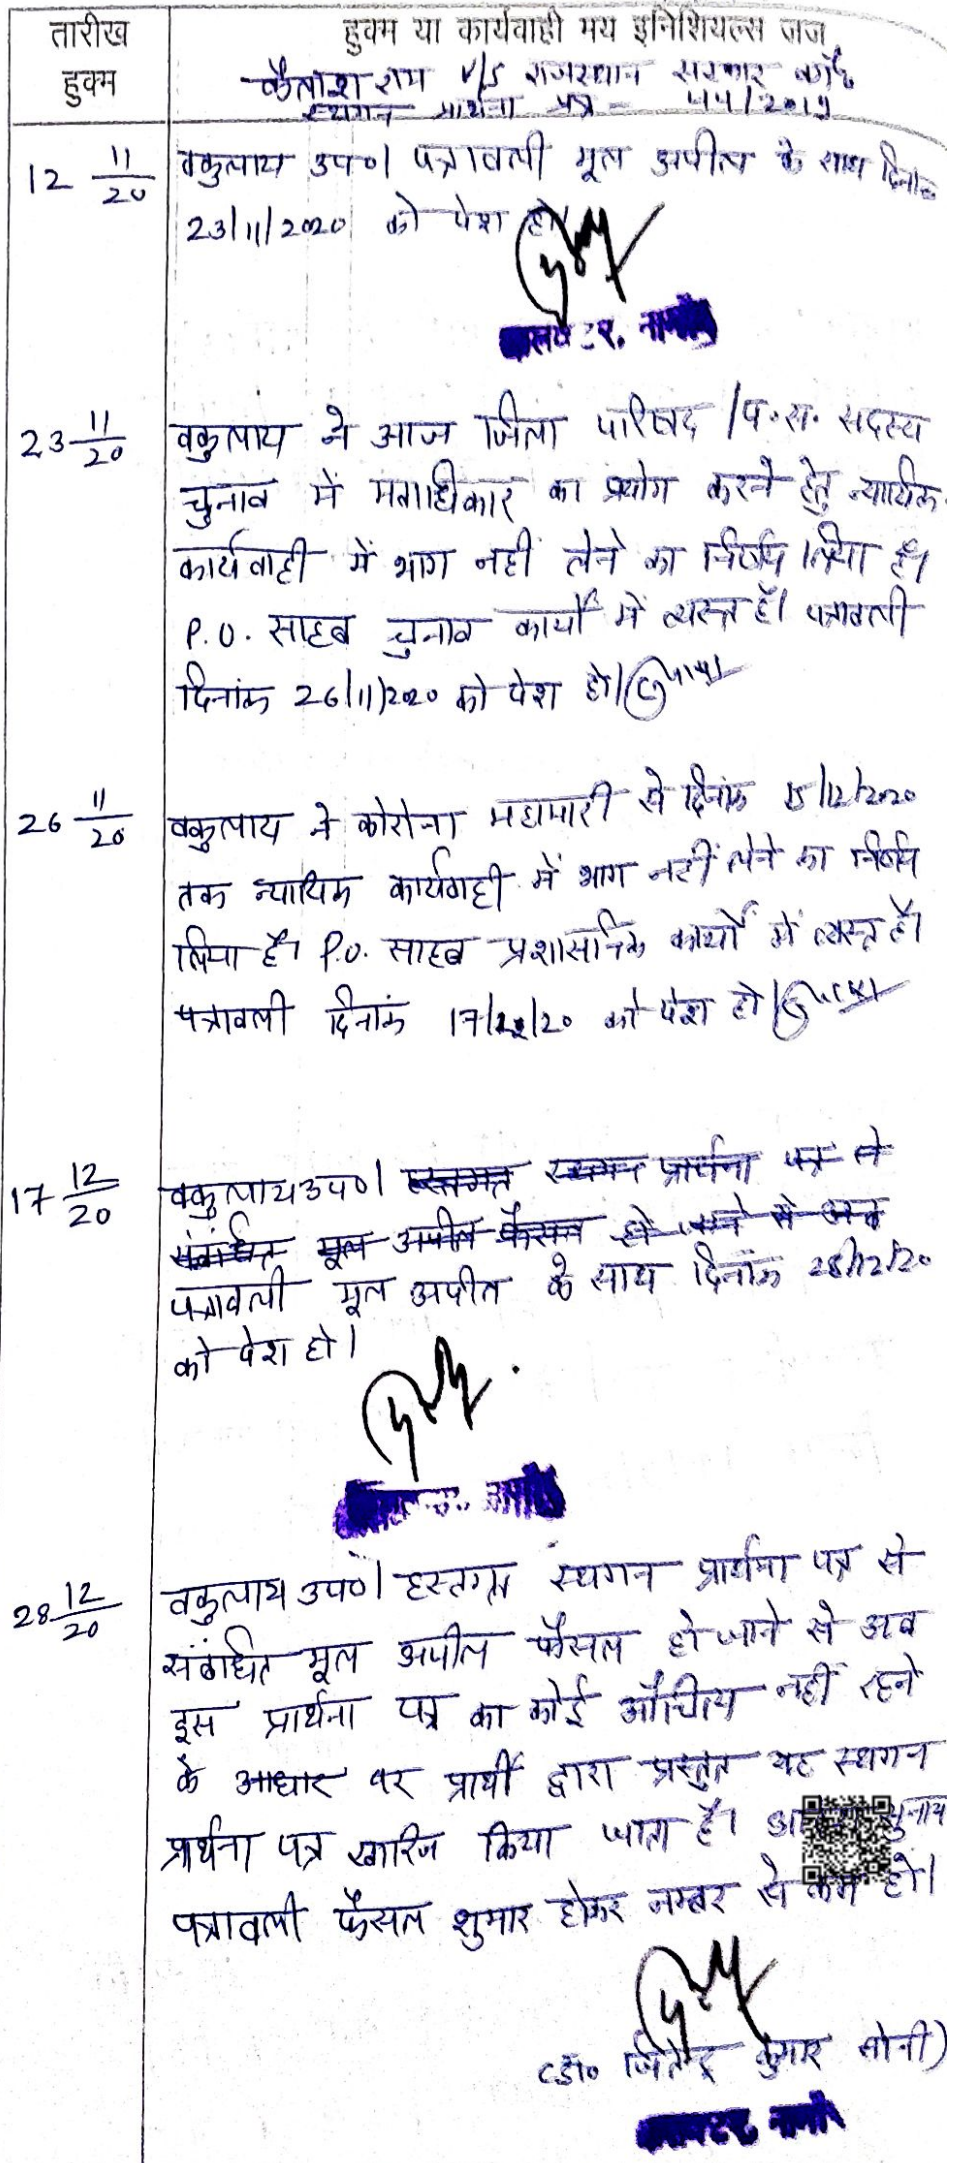 तारीख हुक्म या कार्यवाही मय इनिशियल्स जज
हुक्म कैलाश राम V/S राजस्थान सरकार वगैरह
स्थगन प्रार्थना पत्र - 44/2019
12 11/20 वकुलाय उप०। पत्रावली मूल अपील के साथ दिनांक
23/11/2020 को पेश हो।
कलक्टर, नागौर
23 11/20 वकुलाय ने आज जिला परिषद /प.स. सदस्य
चुनाव में मताधिकार का प्रयोग करने हेतु न्यायिक
कार्यवाही में भाग नहीं लेने का निर्णय लिया है।
P.O. साहब चुनाव कार्यों में व्यस्त हैं। पत्रावली
दिनांक 26/11/2020 को पेश हो।
26 11/20 वकुलाय ने कोरोना महामारी से दिनांक 15/12/2020
तक न्यायिक कार्यवाही में भाग नहीं लेने का निर्णय
लिया है। P.O. साहब प्रशासनिक कार्यों में व्यस्त है।
पत्रावली दिनांक 17/12/20 को पेश हो।
17 12/20 वकुलाय उप०। हस्तगत स्थगन प्रार्थना पत्र से
संबंधित मूल अपील फैसल हो जाने से अब
पत्रावली मूल अपील के साथ दिनांक 28/12/20
को पेश हो।
28 12/20 वकुलाय उप०। हस्तगत स्थगन प्रार्थना पत्र से
संबंधित मूल अपील फैसल हो जाने से अब
इस प्रार्थना पत्र का कोई औचित्य नहीं रहने
के आधार पर प्रार्थी द्वारा प्रस्तुत यह स्थगन
प्रार्थना पत्र खारिज किया जाता है। सुनाया
पत्रावली फैसल शुमार होकर नम्बर से कम हो।
(डॉ० जितेन्द्र कुमार सोनी)
कलक्टर, नागौर